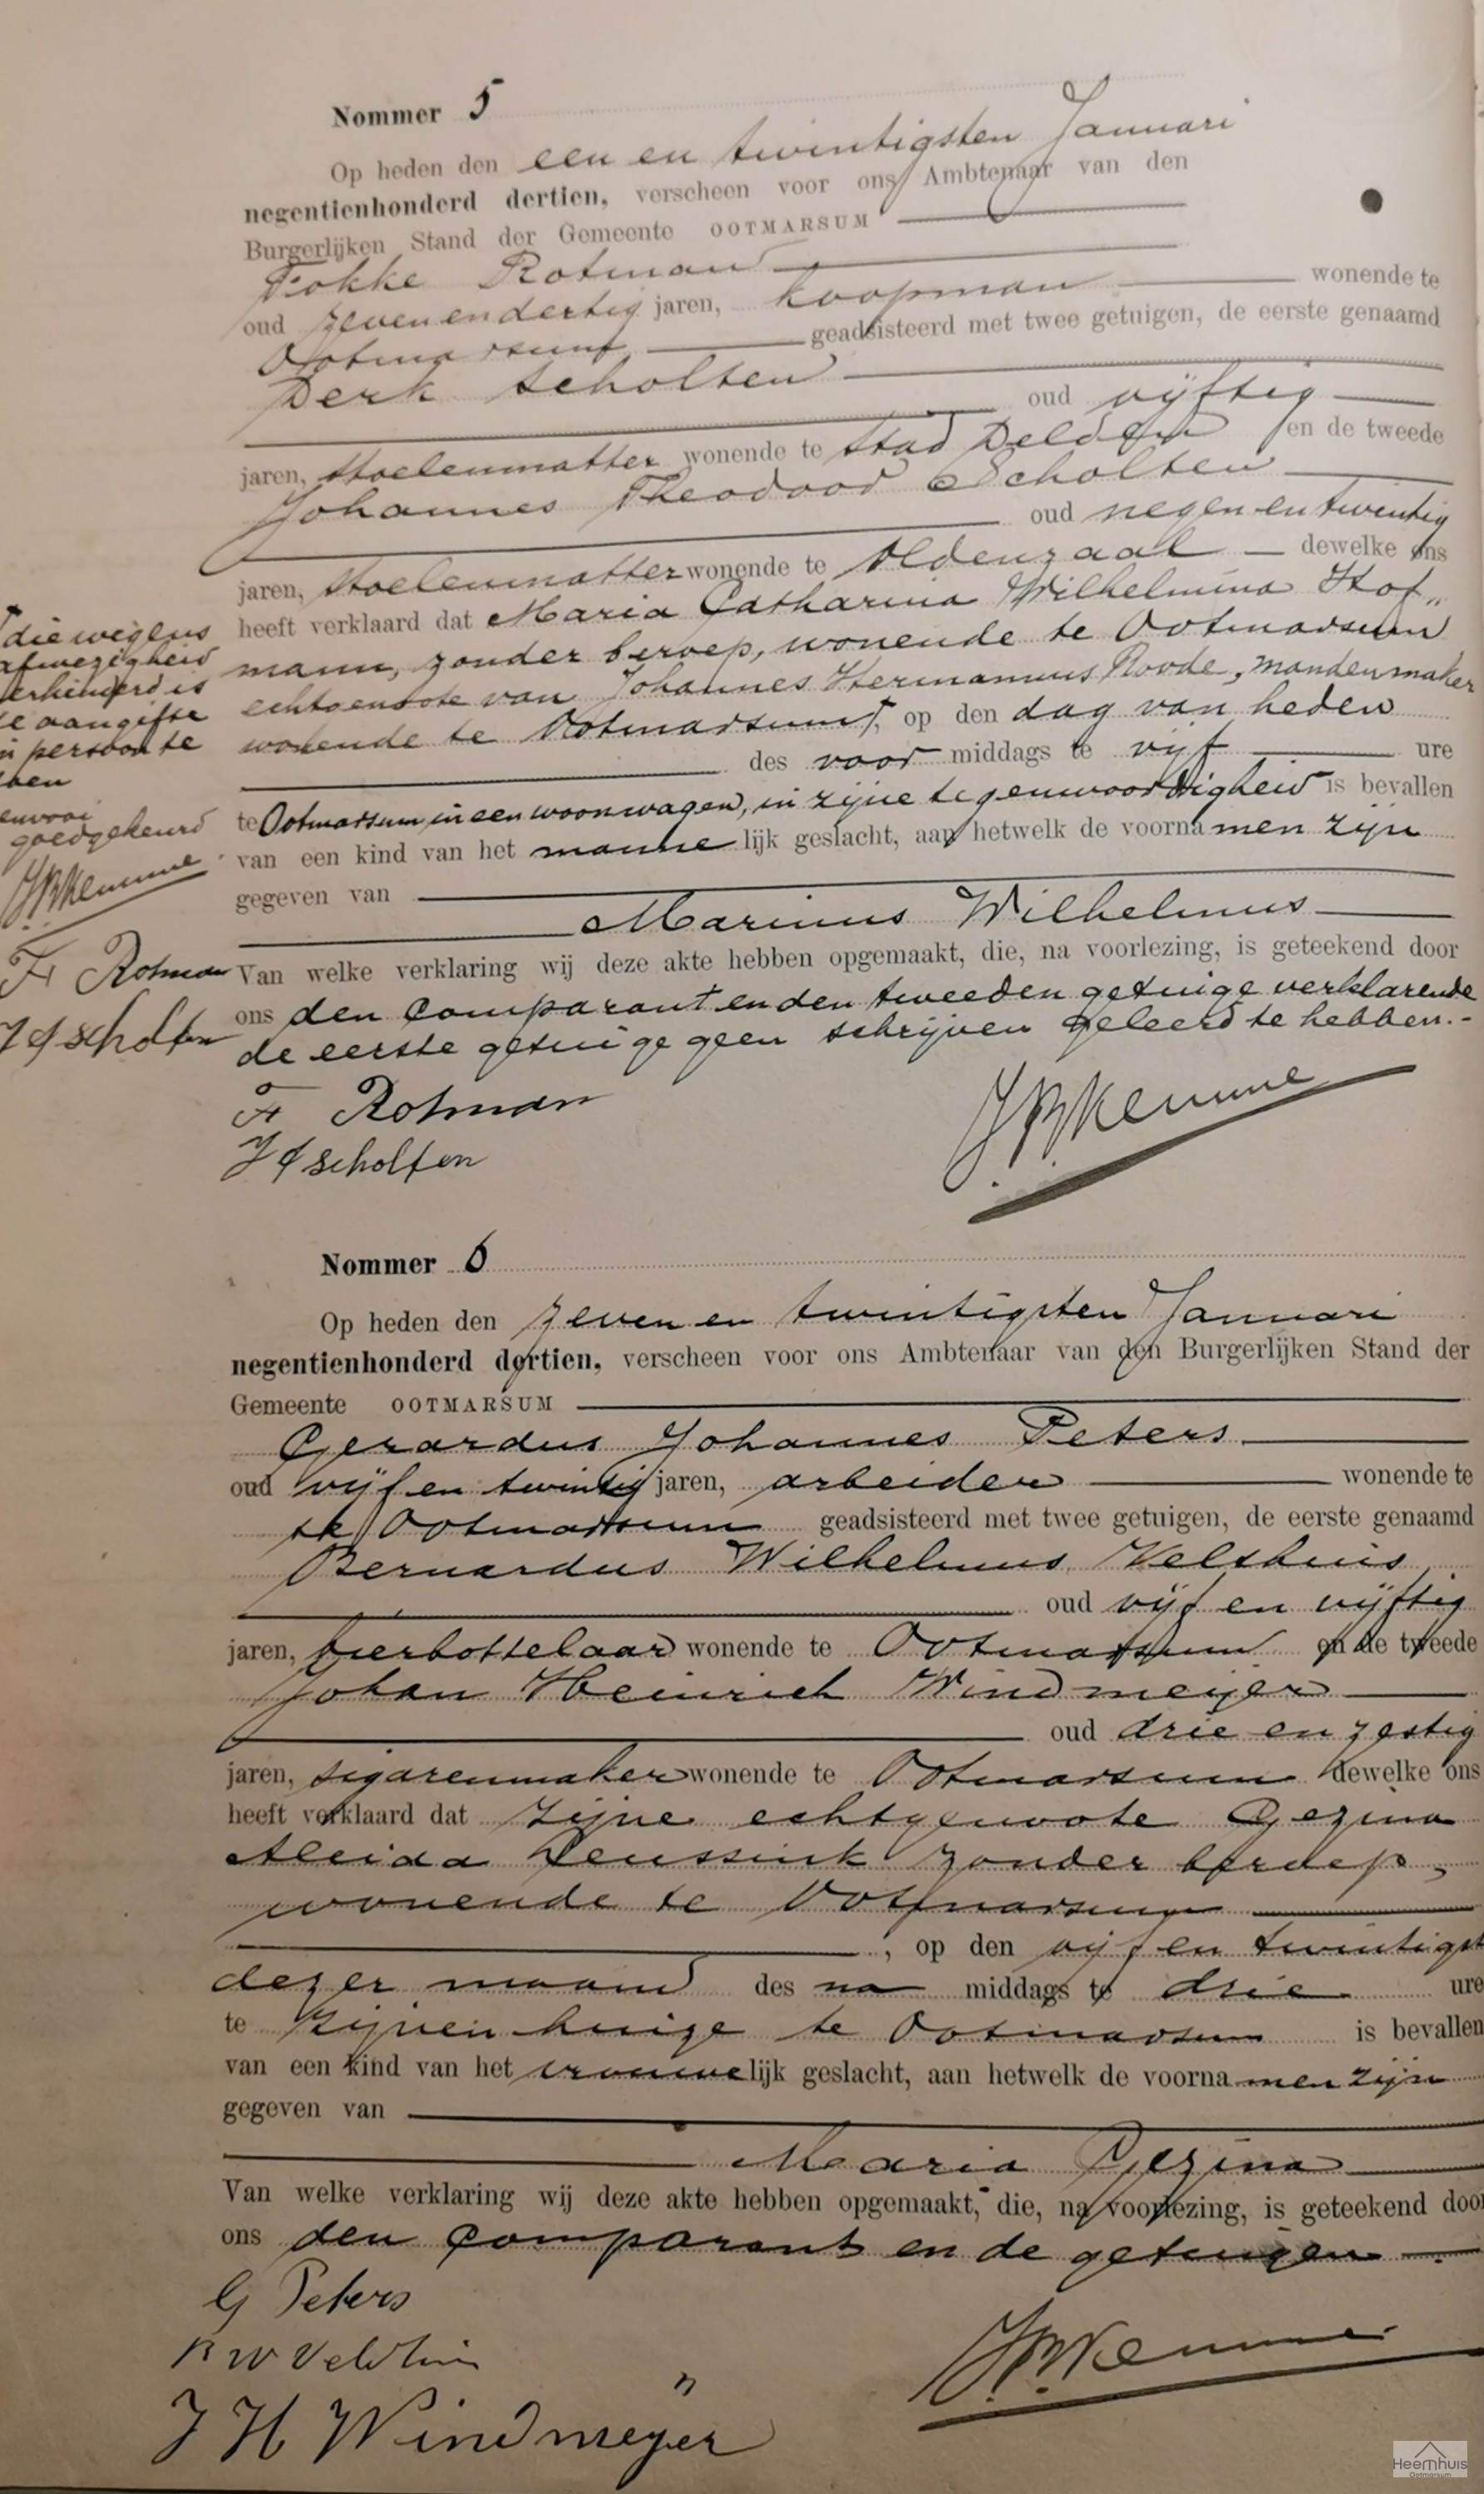 Nommer 5
Op heden den een en twintigsten Januari
negentienhonderd dertien, verscheen voor ons Ambtenaar van den
Burgerlijken Stand der Gemeente OOTMARSUM
Fokke Rotman
oud zeven en dertig jaren, koopman wonende te
Ootmarsum, geadsisteerd met twee getuigen, de eerste genaamd
Derk Scholten
oud vijftig
jaren, stoelenmatter wonende te Stad Delden en de tweede
Johannes Theodoor Scholten
oud negen en twintig
jaren, stoelenmatter wonende te Oldenzaal dewelke ons
heeft verklaard dat Maria Catharina Wilhelmina Hof„
mann, zonder beroep, wonende te Ootmarsum
echtgenoote van Johannes Hermannus Roode, mandenmaker
wonende te Ootmarsum, op den dag van heden
des voor middags te vijf ure
te Ootmarsum in een woonwagen, in zijne tegenwoordigheid is bevallen
van een kind van het manne lijk geslacht, aan hetwelk de voorna men zijn
gegeven van
Marinus Wilhelmus
Van welke verklaring wij deze akte hebben opgemaakt, die, na voorlezing, is geteekend door
ons den comparant en den tweeden getuige verklarende
de eerste getuige geen schrijven geleerd te hebben.-
F Rotman
J Scholten
JBKemme
die wegens
afwezigheid
verhinderd is
de aangifte
in persoon te
doen
goedgekeurd
JBKemme
F Rotman
Scholten
Nommer 6
Op heden den zeven en twintigsten Januari
negentienhonderd dertien, verscheen voor ons Ambtenaar van den Burgerlijken Stand der
Gemeente OOTMARSUM
Gerardus Johannes Peters
oud vijf en twintig jaren, arbeider wonende te
te Ootmarsum geadsisteerd met twee getuigen, de eerste genaamd
Bernardus Wilhelmus Velthuis,
oud vijf en vijftig
jaren, bierbottelaar wonende te Ootmarsum en de tweede
Johan Heinrich Windmeijer
oud drie en zestig
jaren, sigarenmaker wonende te Ootmarsum dewelke ons
heeft verklaard dat zijne echtgenoote Gezina
Aleida Leussink zonder beroep,
wonende te Ootmarsum
, op den vijf en twintigst
dezer maand des na middags te drie ure
te zijnen huize te Ootmarsum is bevallen
van een kind van het vrouwe lijk geslacht, aan hetwelk de voorna men zijn
gegeven van
Maria Gezina
Van welke verklaring wij deze akte hebben opgemaakt, die, na voorlezing, is geteekend door
ons den comparant en de getuigen
G Peters
B W Velthuis
J H Windmeyer
JBKemme
Heemhuis
Ootmarsum